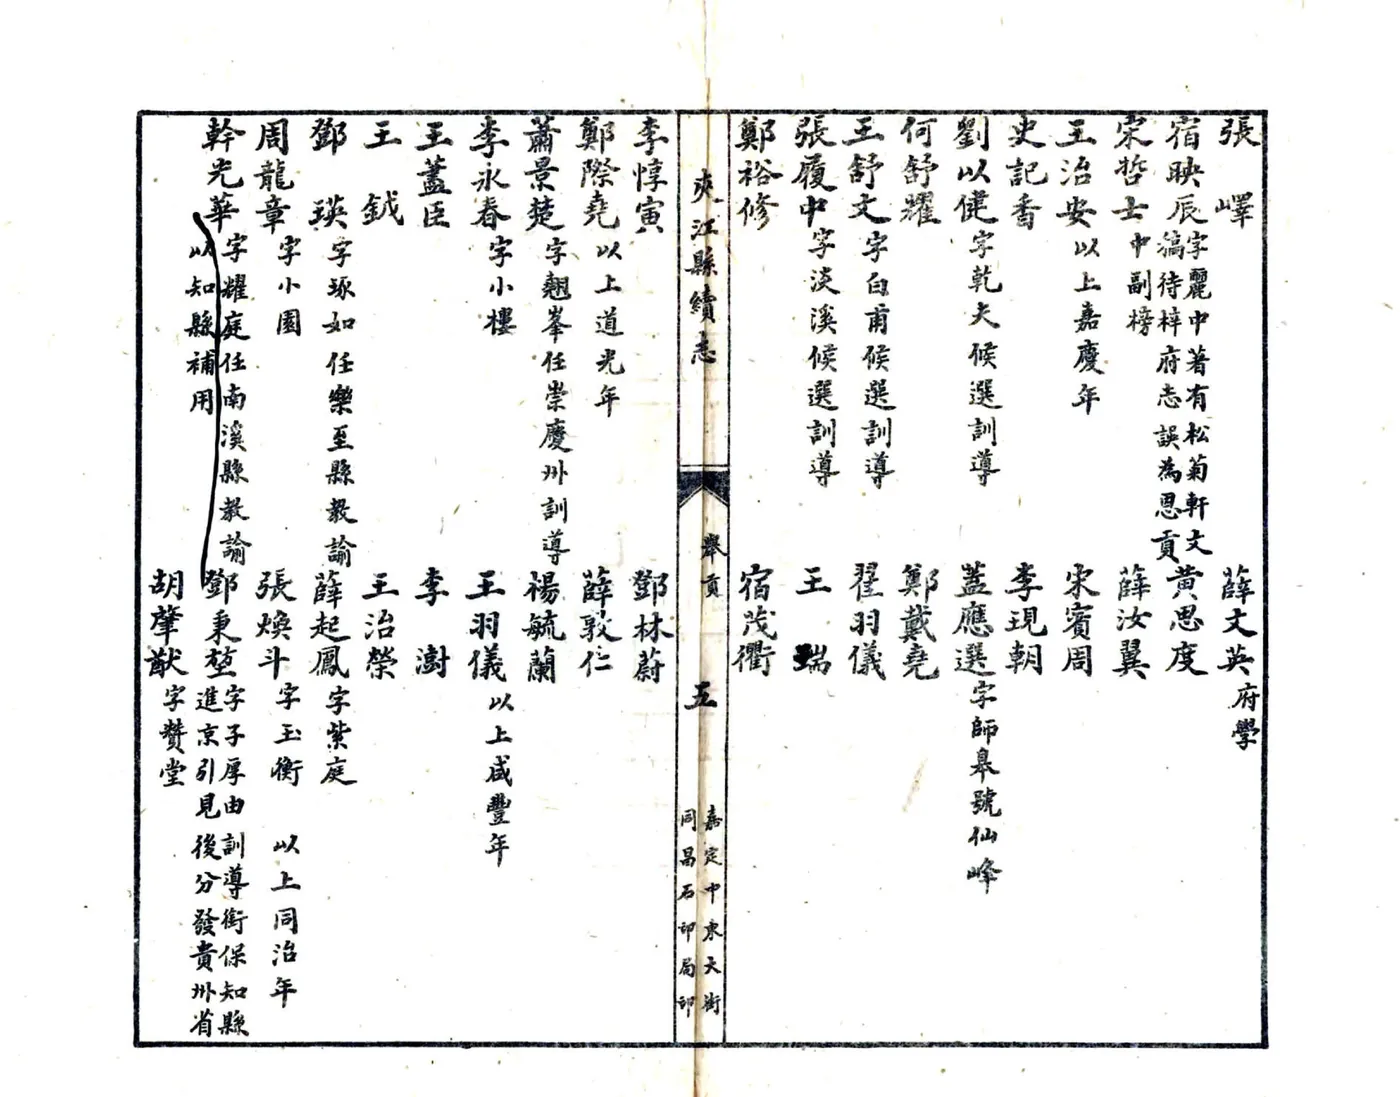 張　嶧　薛文英府學
宿映辰字麗中著有松菊軒文稿待梓府志誤為恩貢　黄思度
宋哲士中副榜　薛汝翼
王治安以上嘉慶年　宋賓周
史記香　李現朝
劉以健字乾夫候選訓導　蓋應選字師皋號仙峰
何舒耀　鄭戴堯
王舒文字白甫候選訓導　翟羽儀
張履中字淡溪候選訓導　王　瑞
鄭裕修　宿茂衢
夾江縣續志　舉貢　五　嘉定中東大街同昌石印局印
李惇寅　鄧林蔚
鄭際堯以上道光年　薛敦仁
蕭景楚字翹峯任崇慶州訓導　楊毓蘭
李永春字小樓　王羽儀以上咸豐年
王藎臣　李　澍
王　鉞　王治榮
鄧　瑛字琢如任樂至縣教諭　薛起鳳字紫庭
周龍章字小園　張煥斗字玉衡　以上同治年
幹光華字耀庭任南溪縣教諭以知縣補用　鄧秉堃字子厚由訓導銜保知縣進京引見後分發貴州省
胡肇猷字贊堂